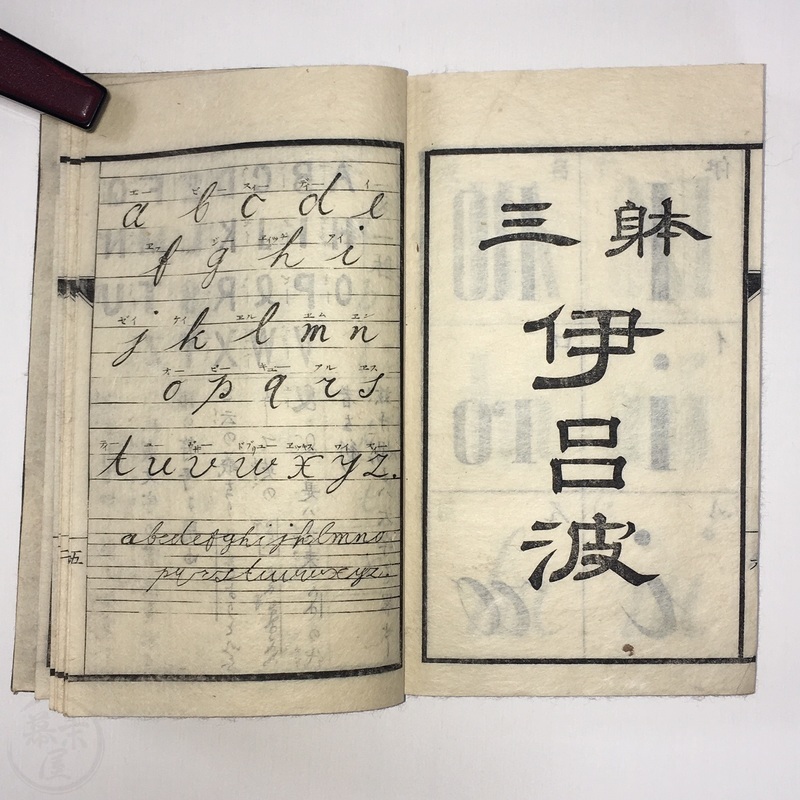 エー ビー スィー ディー イー
a b c d e
エフ ジー エイッチ アイ
f g h i
ゼイ ケイ エル エム エン
j k l m n
オー ピー キュー アル エス
o p q r s
ティー ユー ワイ
t u v w x y z.
abcdefghijklmno
pqrsstuvwxyz.
五
三躰
伊
呂
波
幕末屋